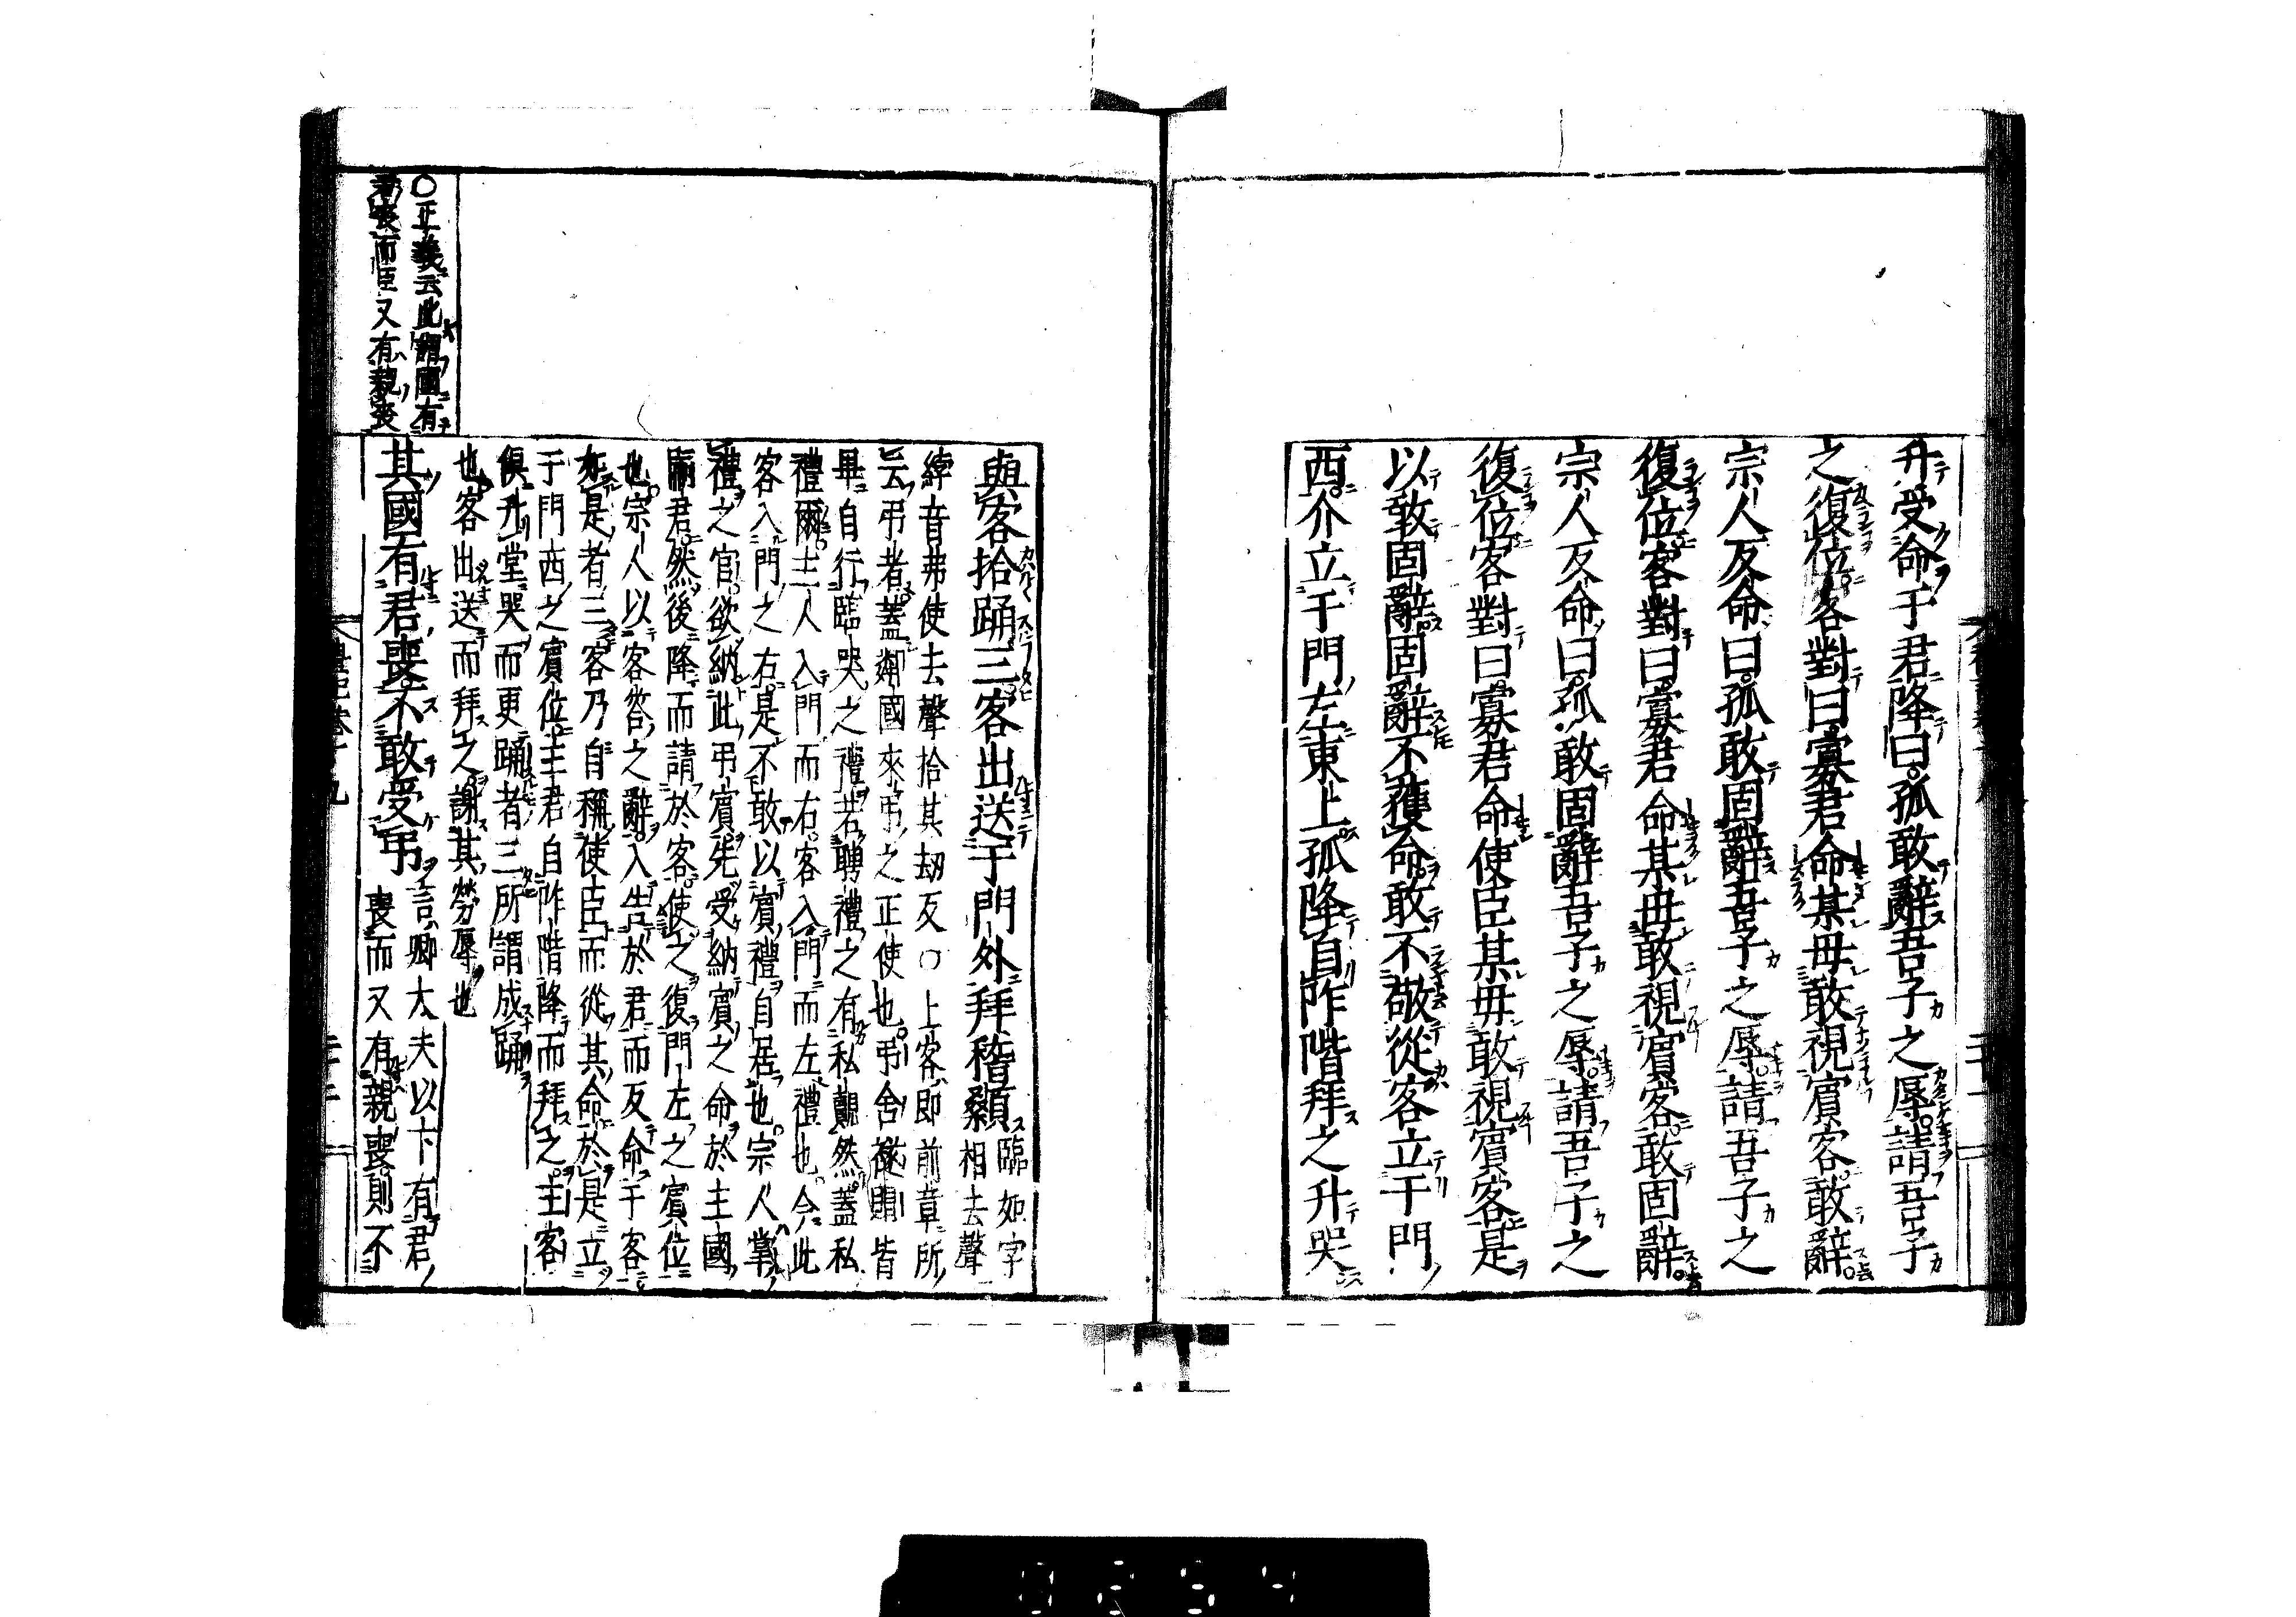 升受命于君降曰孤敢辭吾子之辱請吾子
之復位客對曰寡君命某毋敢視賓客敢辭
宗人反命曰孤敢固辭吾子之辱請吾子之
復位客對曰寡君命某毋敢視賓客敢固辭
宗人反命曰孤敢固辭吾子之辱請吾子之
復位客對曰寡君命使臣某毋敢視賓客是
以敢固辭固辭不獲命敢不敬從客立于門
西介立于門左東上孤降自阼階拜之升哭
與客拾踊三客出送于門外拜稽顙
臨如字
相去聲
綍音弗使去聲拾其劫反○上客即前章所
云弔者蓋鄰國來弔之正使也弔含襚賵皆
畢自行臨哭之禮若聘禮之有私覿然蓋私
禮爾主人入門而右客入門而左禮也今此
客入門之右是不敢以賓禮自居也宗人掌
禮之官欲納此弔賓先受納賓之命於主國
嗣君然後降而請於客使之復門左之賓位
也宗人以客答之辭入告於君而反命于客
如是者三客乃自稱使臣而從其命於是立
于門西之賓位主君自阼階降而拜之主客
俱升堂哭而更踊者三所謂成踊
也客出送而拜之謝其勞辱也
其國有君喪不敢受弔
言卿大夫以下有君
喪而又有親喪則不
○正義云此謂國有
君喪而臣又有親喪